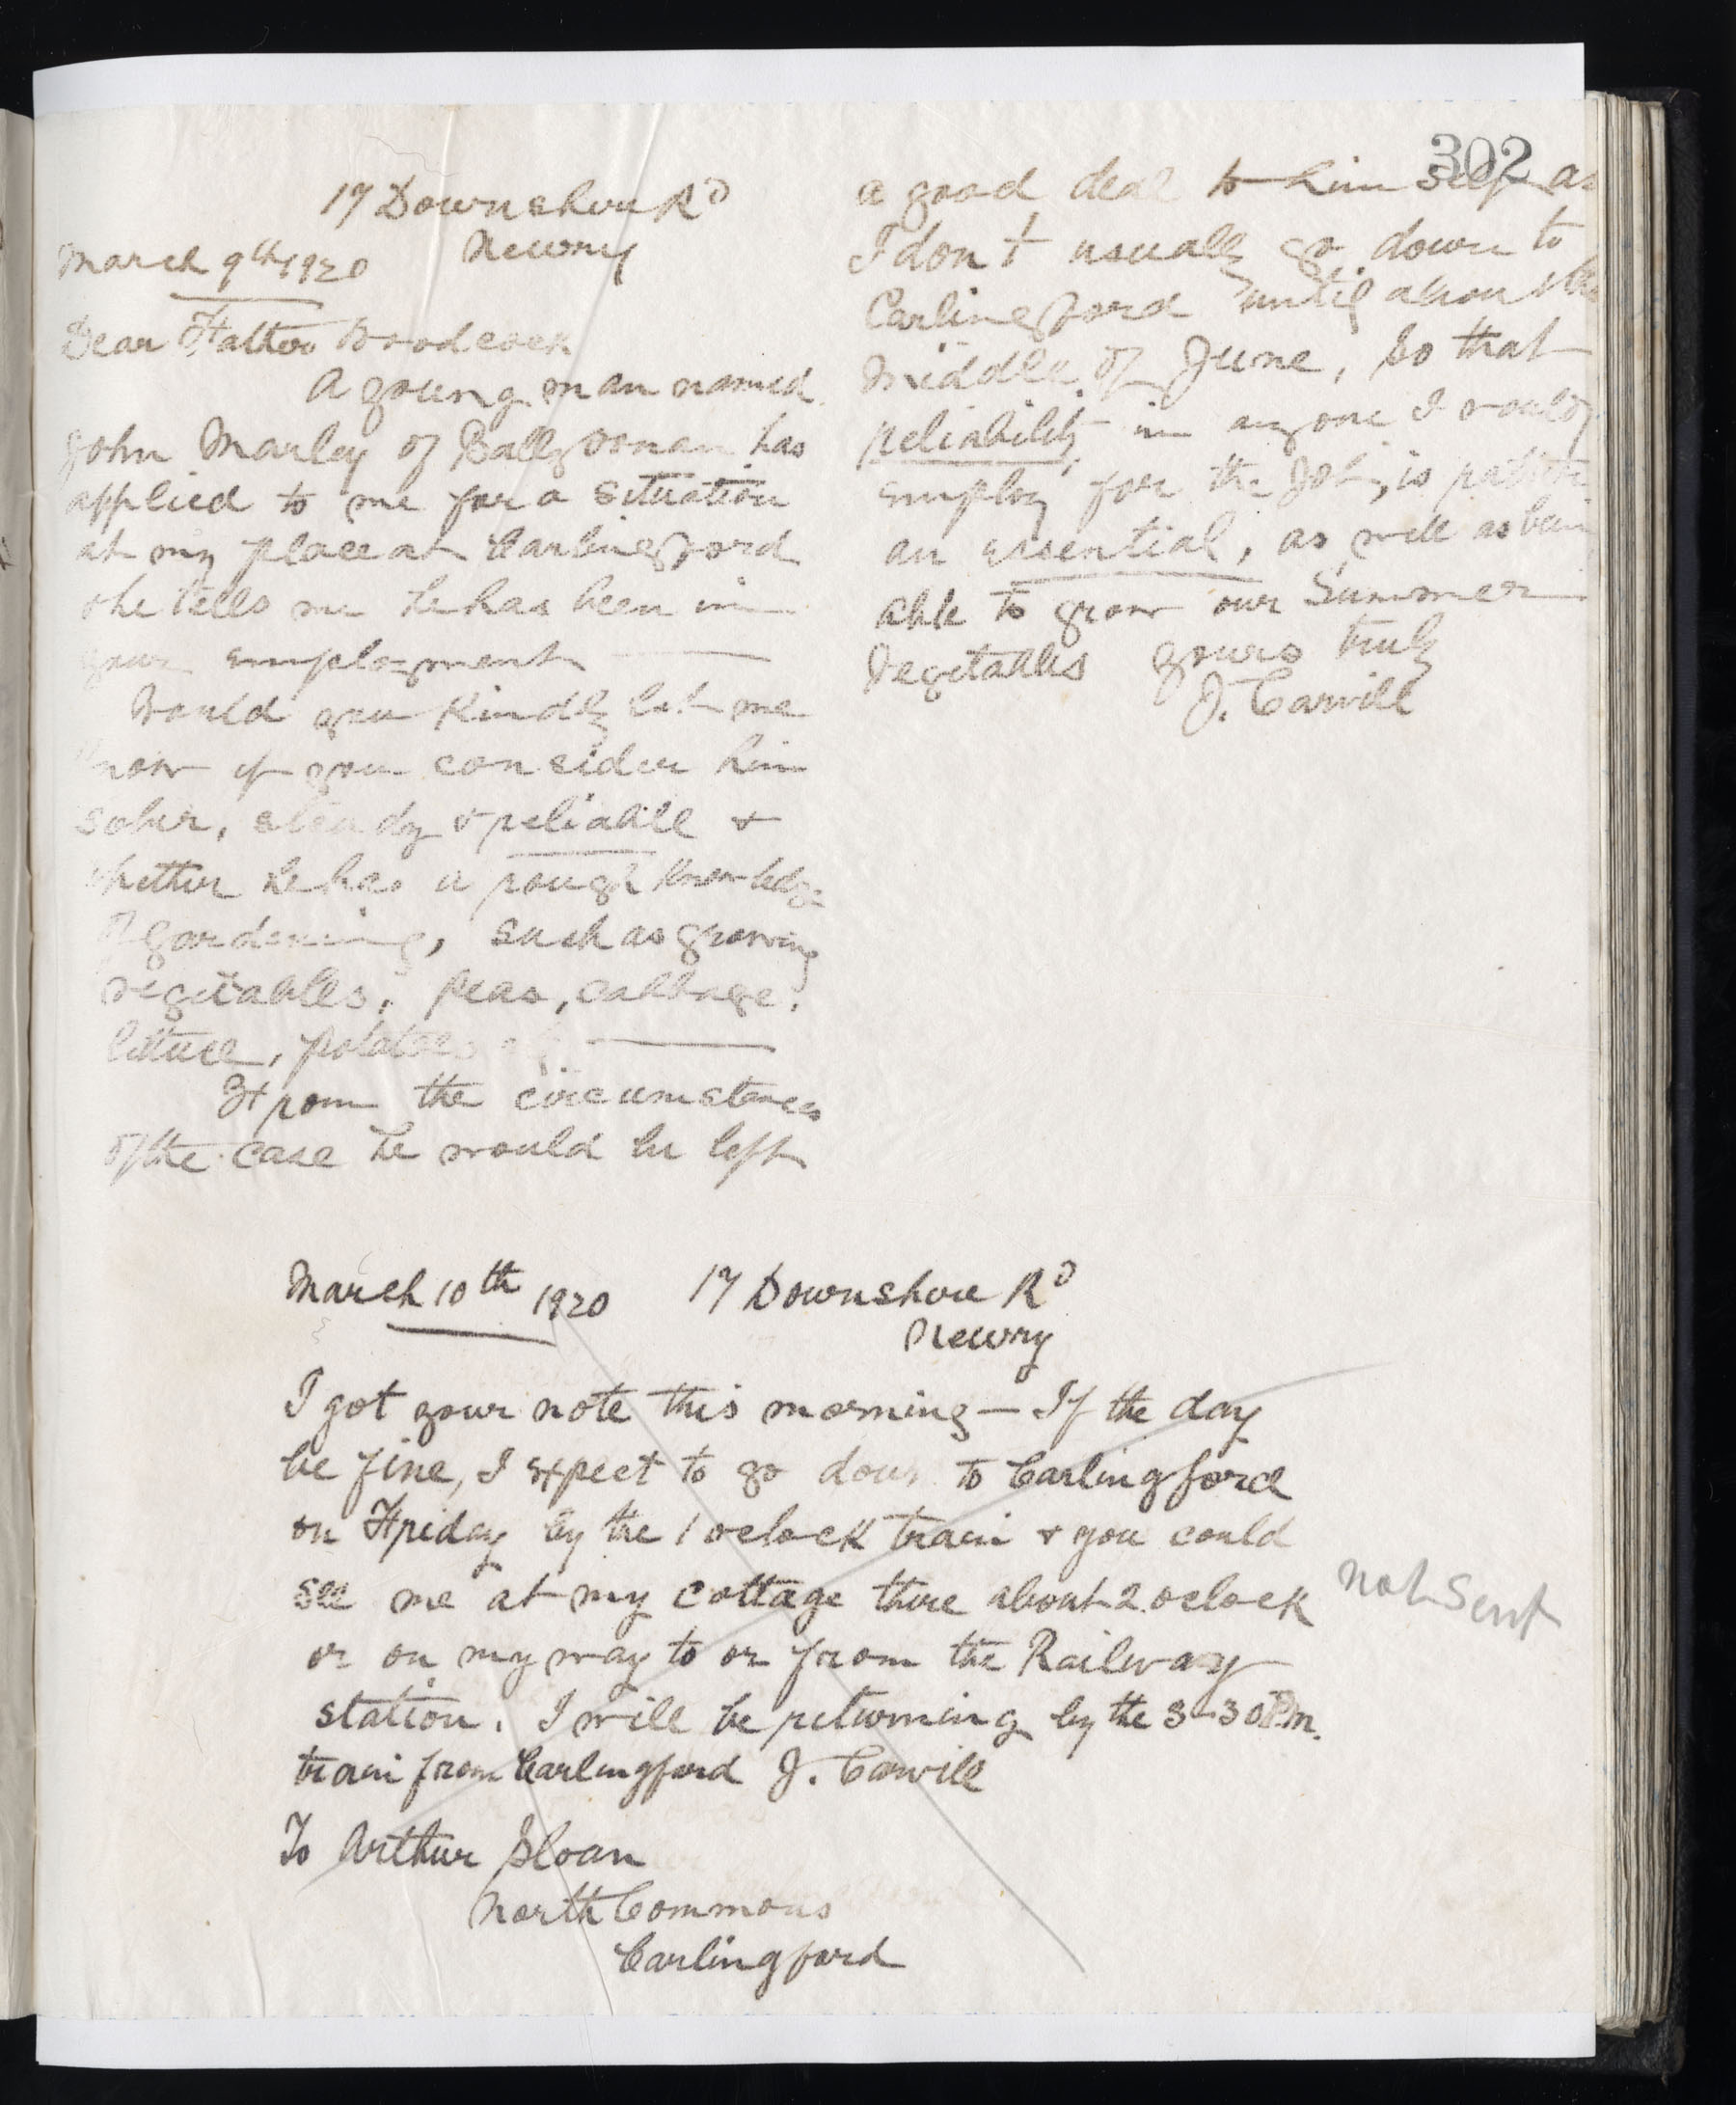 302
17 Downshire Rd
Newry
March 9th 1920
Dear Father Woodcock
A young man named
John Marley of Ballyoonan has
applied to me for a situation
at my place at Carlingford
& he tells me he has been in
your employment —
Would you kindly let me
know if you consider him
sober, steady & reliable &
whether he has a rough knowledge
of gardening, such as growing
vegitables, peas, cabbage,
lettuce, potatoes
From the circumstances
of the case he would be left
a good deal to him self as
I don't usually go down to
Carlingford until about the
middle of June, so that
reliability in anyone I would
employ for the Job, is
an essential, as well as bein
able to grow our Summer
Vegitables yours truly
J. Carvill
March 10th 1920 17 Downshire Rd
Newry
I got your note this morning — If the day
be fine, I expect to go down to Carlingford
on Friday by the 1 oclock train & you could
see me at my cottage there about 2 oclock
or on my way to or from the Railway
station. I will be returning by the 3-30 P.m.
train from Carlingford J. Carvill
not sent
To Arthur Sloan
North Commons
Carlingford